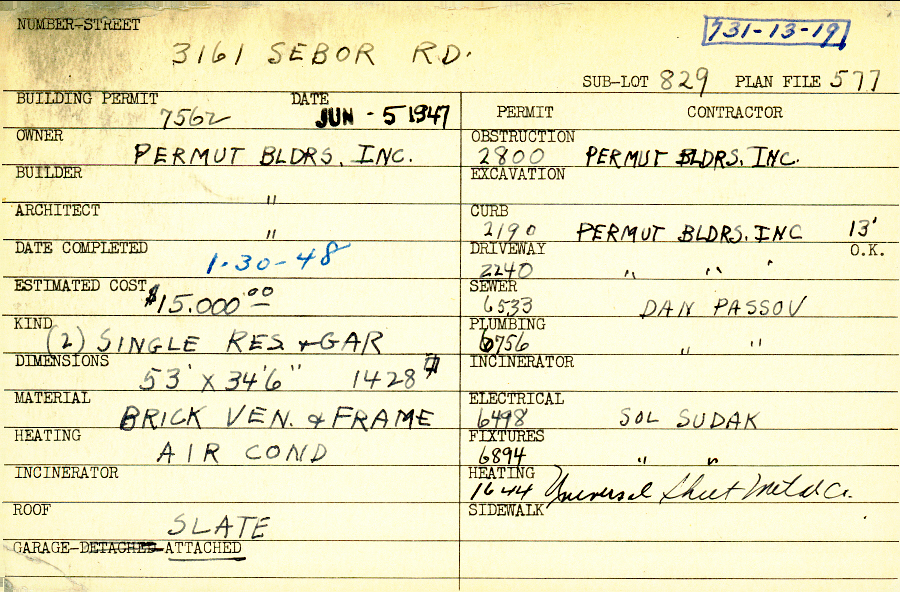 NUMBER-STREET
731-13-19
3161 SEBOR RD.
SUB-LOT 829 PLAN FILE 577
BUILDING PERMIT DATE
7562 JUN - 5 1947
PERMIT CONTRACTOR
OWNER
PERMUT BLDRS. INC.
OBSTRUCTION
2800 PERMUT BLDRS. INC.
BUILDER
"
EXCAVATION
ARCHITECT
"
CURB
2190 PERMUT BLDRS. INC 13'
DATE COMPLETED
1-30-48
DRIVEWAY O.K.
2240 " " "
ESTIMATED COST
$15.000.00
SEWER
6533 DAN PASSOV
KIND
(2) SINGLE RES. + GAR
PLUMBING
6756 " "
DIMENSIONS
53' X 34'6" 1428
INCINERATOR
MATERIAL
BRICK VEN. & FRAME
ELECTRICAL
6498 SOL SUDAK
HEATING
AIR COND
FIXTURES
6894 " "
INCINERATOR
HEATING
1644 Universal Sheet Metal Co.
ROOF
SLATE
SIDEWALK
GARAGE-DETACHED-ATTACHED